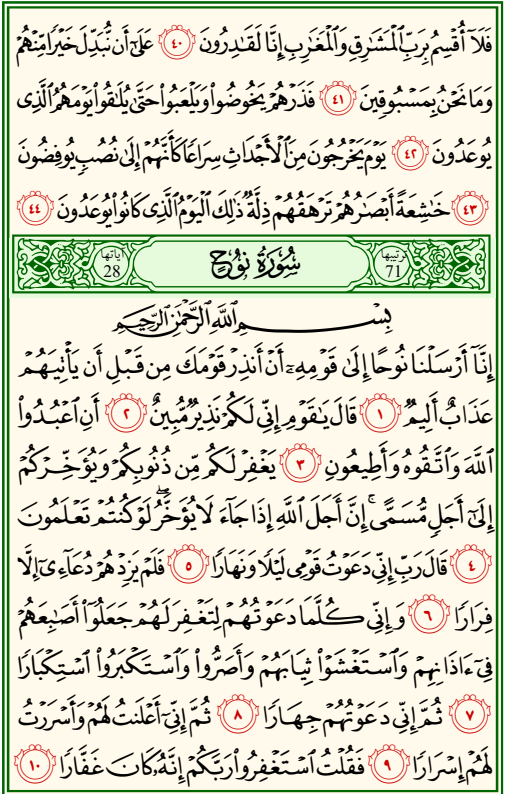 فَلَآ أُقْسِمُ بِرَبِّ ٱلْمَشَٰرِقِ وَٱلْمَغَٰرِبِ إِنَّا لَقَٰدِرُونَ ٤٠ عَلَىٰٓ أَن نُّبَدِّلَ خَيْرًا مِّنْهُمْ
وَمَا نَحْنُ بِمَسْبُوقِينَ ٤١ فَذَرْهُمْ يَخُوضُوا۟ وَيَلْعَبُوا۟ حَتَّىٰ يُلَٰقُوا۟ يَوْمَهُمُ ٱلَّذِى
يُوعَدُونَ ٤٢ يَوْمَ يَخْرُجُونَ مِنَ ٱلْأَجْدَاثِ سِرَاعًا كَأَنَّهُمْ إِلَىٰ نُصُبٍ يُوفِضُونَ
٤٣ خَٰشِعَةً أَبْصَٰرُهُمْ تَرْهَقُهُمْ ذِلَّةٌ ۚ ذَٰلِكَ ٱلْيَوْمُ ٱلَّذِى كَانُوا۟ يُوعَدُونَ ٤٤
ترتيبها 71 سُورَةُ نُوحٍ آياتها 28
بِسْمِ ٱللَّهِ ٱلرَّحْمَٰنِ ٱلرَّحِيمِ
إِنَّآ أَرْسَلْنَا نُوحًا إِلَىٰ قَوْمِهِۦٓ أَنْ أَنذِرْ قَوْمَكَ مِن قَبْلِ أَن يَأْتِيَهُمْ
عَذَابٌ أَلِيمٌ ١ قَالَ يَٰقَوْمِ إِنِّى لَكُمْ نَذِيرٌ مُّبِينٌ ٢ أَنِ ٱعْبُدُوا۟
ٱللَّهَ وَٱتَّقُوهُ وَأَطِيعُونِ ٣ يَغْفِرْ لَكُم مِّن ذُنُوبِكُمْ وَيُؤَخِّرْكُمْ
إِلَىٰٓ أَجَلٍ مُّسَمًّى ۚ إِنَّ أَجَلَ ٱللَّهِ إِذَا جَآءَ لَا يُؤَخَّرُ ۖ لَوْ كُنتُمْ تَعْلَمُونَ
٤ قَالَ رَبِّ إِنِّى دَعَوْتُ قَوْمِى لَيْلًا وَنَهَارًا ٥ فَلَمْ يَزِدْهُمْ دُعَآءِىٓ إِلَّا
فِرَارًا ٦ وَإِنِّى كُلَّمَا دَعَوْتُهُمْ لِتَغْفِرَ لَهُمْ جَعَلُوٓا۟ أَصَٰبِعَهُمْ
فِىٓ ءَاذَانِهِمْ وَٱسْتَغْشَوْا۟ ثِيَابَهُمْ وَأَصَرُّوا۟ وَٱسْتَكْبَرُوا۟ ٱسْتِكْبَارًا
٧ ثُمَّ إِنِّى دَعَوْتُهُمْ جِهَارًا ٨ ثُمَّ إِنِّىٓ أَعْلَنتُ لَهُمْ وَأَسْرَرْتُ
لَهُمْ إِسْرَارًا ٩ فَقُلْتُ ٱسْتَغْفِرُوا۟ رَبَّكُمْ إِنَّهُۥ كَانَ غَفَّارًا ١٠